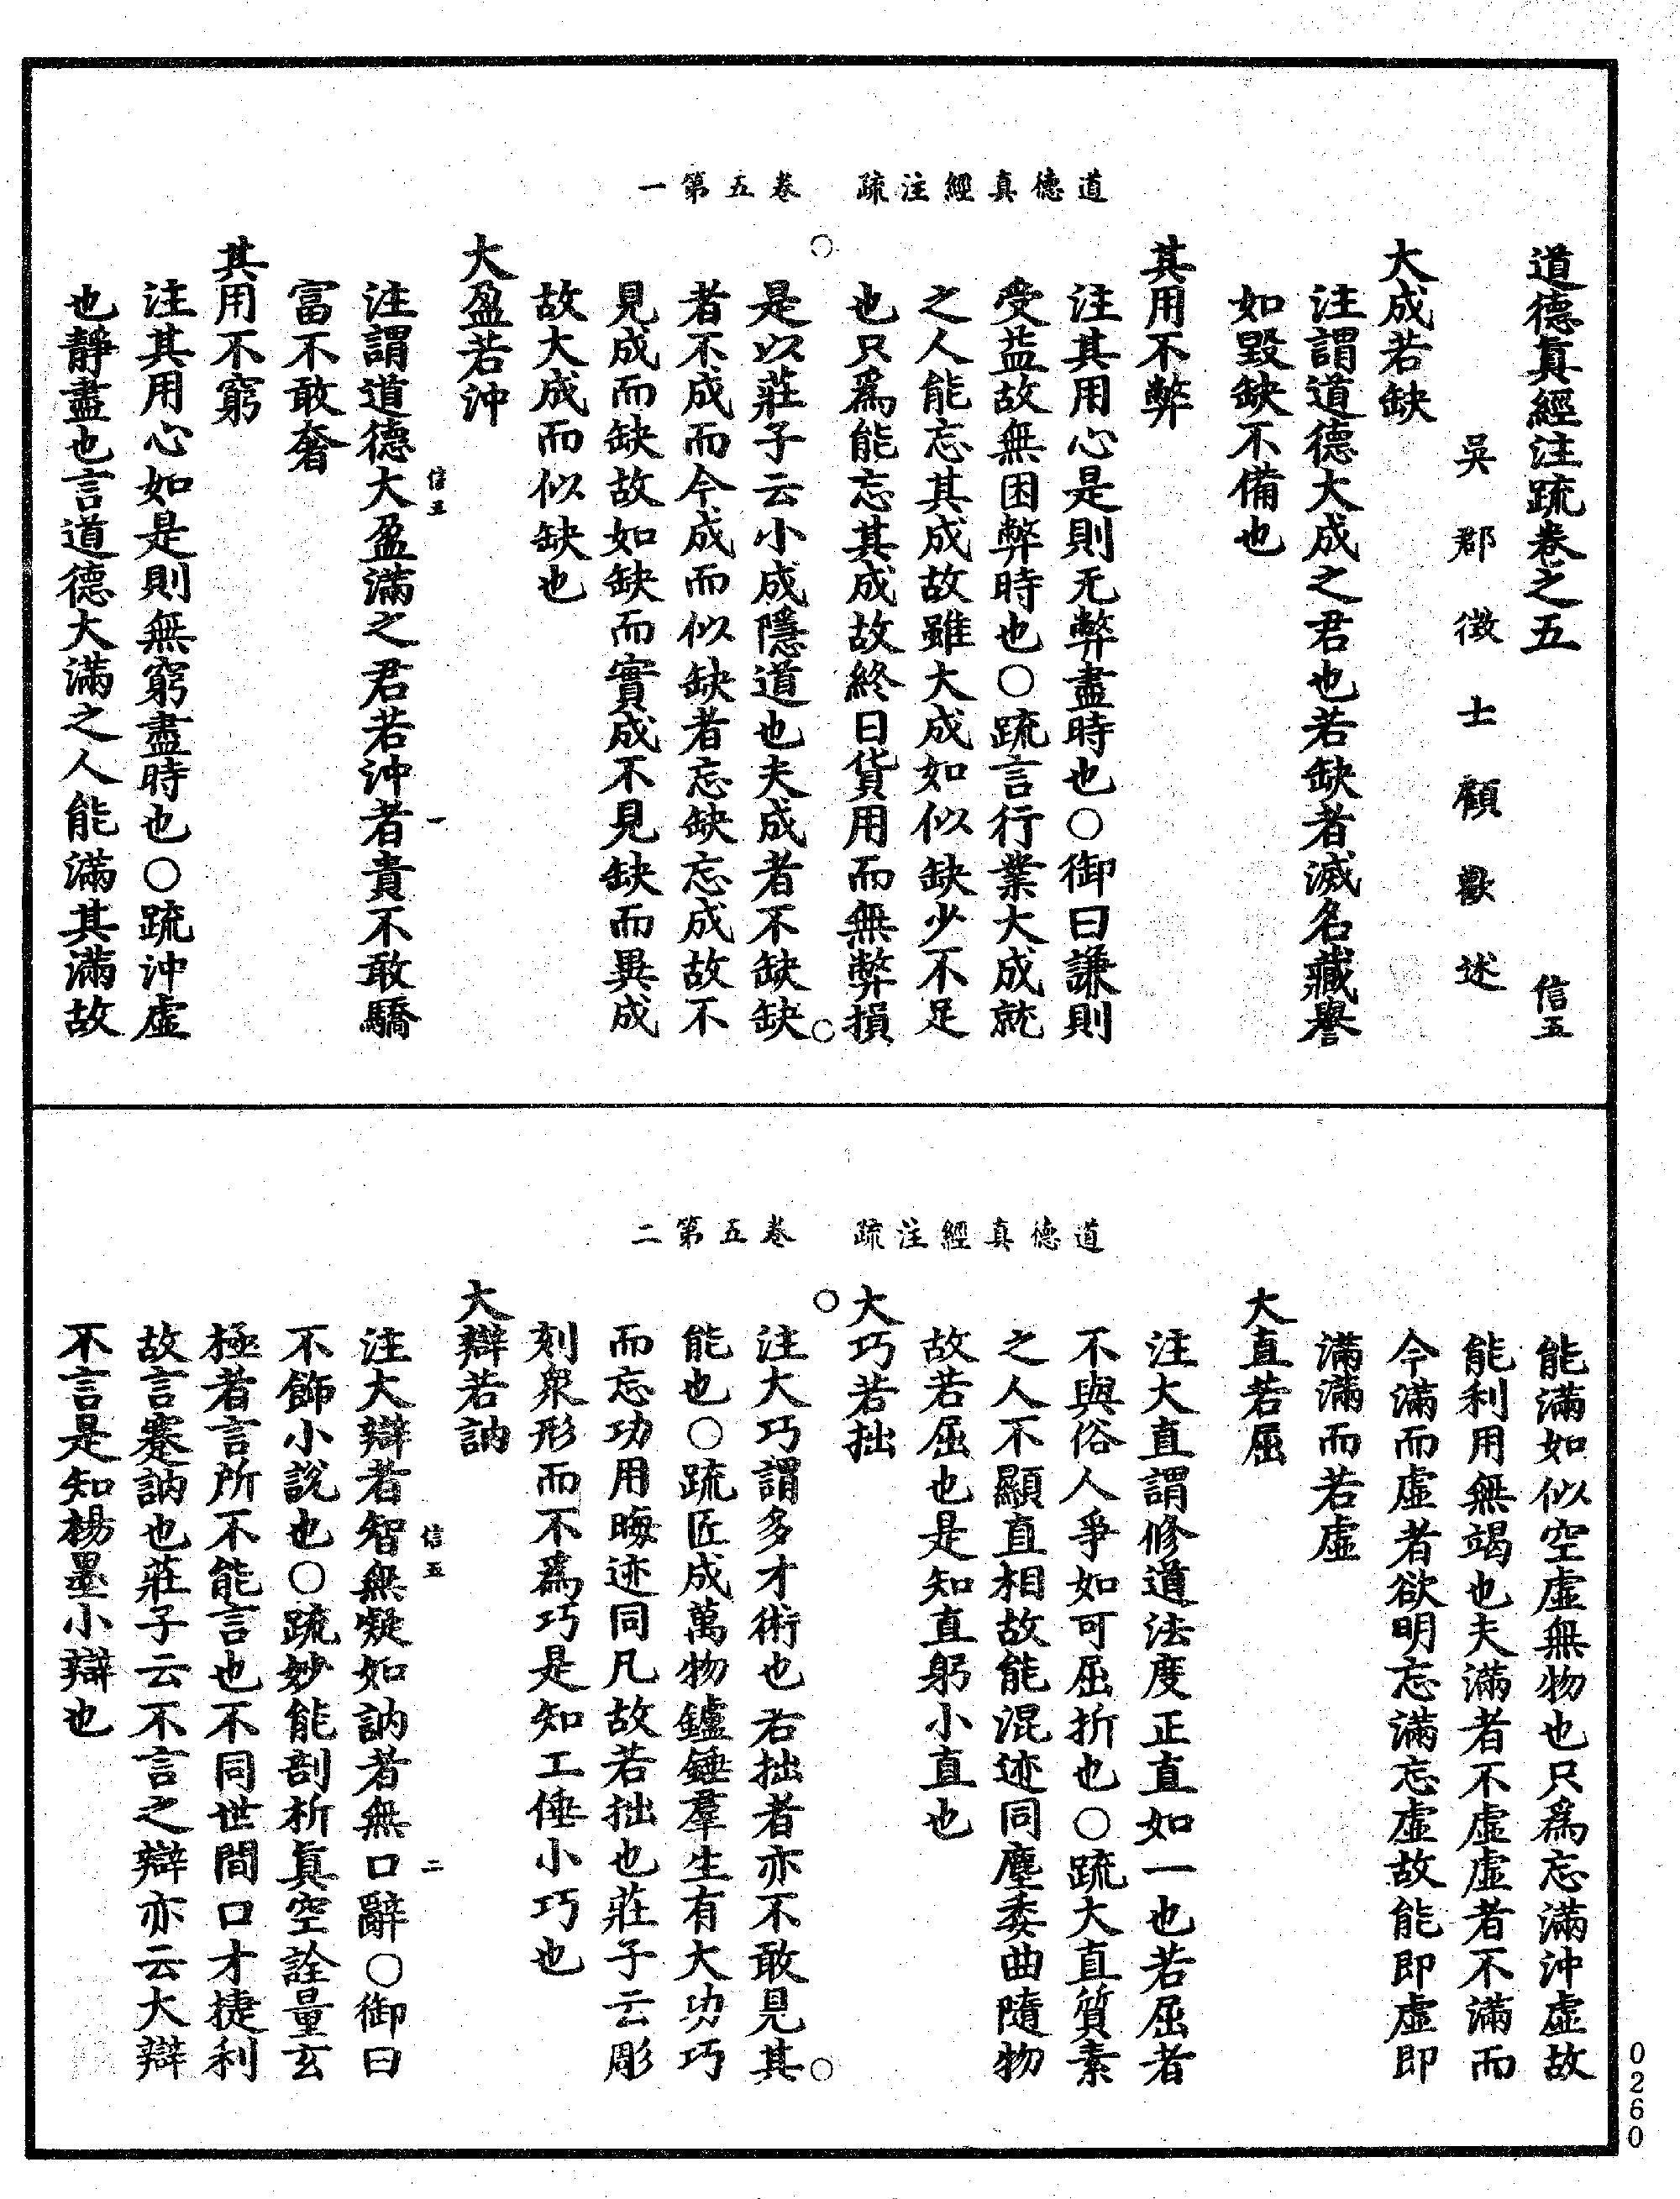 道德真經注疏　卷五第一
道德眞經注疏卷之五　信五
吳郡徵士顧歡述
大成若缺
注謂道德大成之君也若缺者滅名藏譽
如毀缺不備也
其用不弊
注其用心是則无弊盡時也○御曰謙則
受益故無困弊時也○疏言行業大成就
之人能忘其成故雖大成如似缺少不足
也只爲能忘其成故終日貨用而無弊損
是以莊子云小成隱道也夫成者不缺缺
者不成而今成而似缺者忘缺忘成故不
見成而缺故如缺而實成不見缺而異成
故大成而似缺也
大盈若沖
信五　一
注謂道德大盈滿之君若沖者貴不敢驕
富不敢奢
其用不窮
注其用心如是則無窮盡時也○疏沖虛
也靜盡也言道德大滿之人能滿其滿故
道德真經注疏　卷五第二
能滿如似空虛無物也只爲忘滿沖虛故
能利用無竭也夫滿者不虛虛者不滿而
今滿而虛者欲明忘滿忘虛故能即虛即
滿滿而若虛
大直若屈
注大直謂修道法度正直如一也若屈者
不與俗人爭如可屈折也○疏大直質素
之人不顯直相故能混迹同塵委曲隨物
故若屈也是知直躬小直也
大巧若拙
注大巧謂多才術也若拙者亦不敢見其
能也○疏匠成萬物鑪錘羣生有大功巧
而忘功用晦迹同凡故若拙也莊子云彫
刻衆形而不爲巧是知工倕小巧也
大辯若訥
信五　二
注大辯者智無礙如訥者無口辭○御曰
不飾小說也○疏妙能剖析眞空詮量玄
極者言所不能言也不同世間口才捷利
故言蹇訥也莊子云不言之辯亦云大辯
不言是知楊墨小辯也
0260